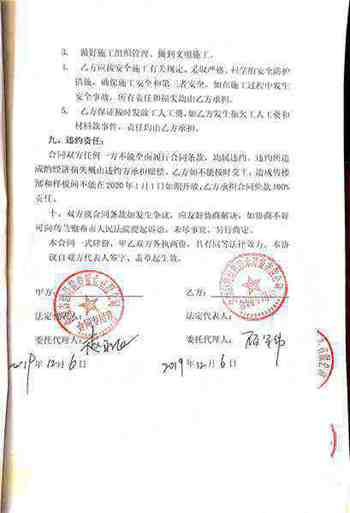 3. 做好施工组织管理、做到文明施工。
4. 乙方应按安全施工有关规定，采取严格、科学的安全防护
措施，确保施工安全和第三者安全。如在施工过程中发生
安全事故，所有责任和损失均由乙方承担。
5. 乙方保证按时发放工人工资，如乙方发生拖欠工人工资和
材料款事件，责任均由乙方承担。
九、违约责任：
合同双方任何一方不能全面履行合同条款，均属违约。违约所造
成的经济损失概由违约方承担赔偿。乙方如不能按时交工，造成售楼
部和样板间不能在2020年1月1日如期开放，乙方承担合同价款100%
责任。
十、双方就合同条款如发生争议，应友好协商解决，如协商不好
可向乌兰察布市人民法院提起诉讼。未尽事宜，另行商定。
本合同一式肆份，甲乙双方各执两份，具有同等法律效力。本协
议自双方代表人签字、盖章起生效。
甲方： 乙方：
法定代表人： 法定代表人：
委托代理人： 委托代理人：
2019年12月6日 2019年12月6日
合同专用章